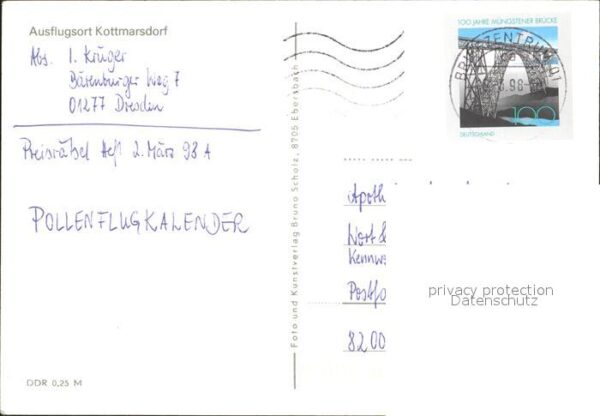 Ausflugsort Kottmarsdorf
Abs. I. Krüger
Bärenburger Weg 7
01277 Dresden
Preisrätsel Heft 2. März 98 A
POLLENFLUGKALENDER
DDR 0,25 M
Foto und Kunstverlag Bruno Scholz, 8705 Ebersbach
100 JAHRE MÜNGSTENER BRÜCKE
BRIEFZENTRUM 01
.98
100
DEUTSCHLAND
Apoth
Wort &
Kennw
Postfo
8200
privacy protection
Datenschutz